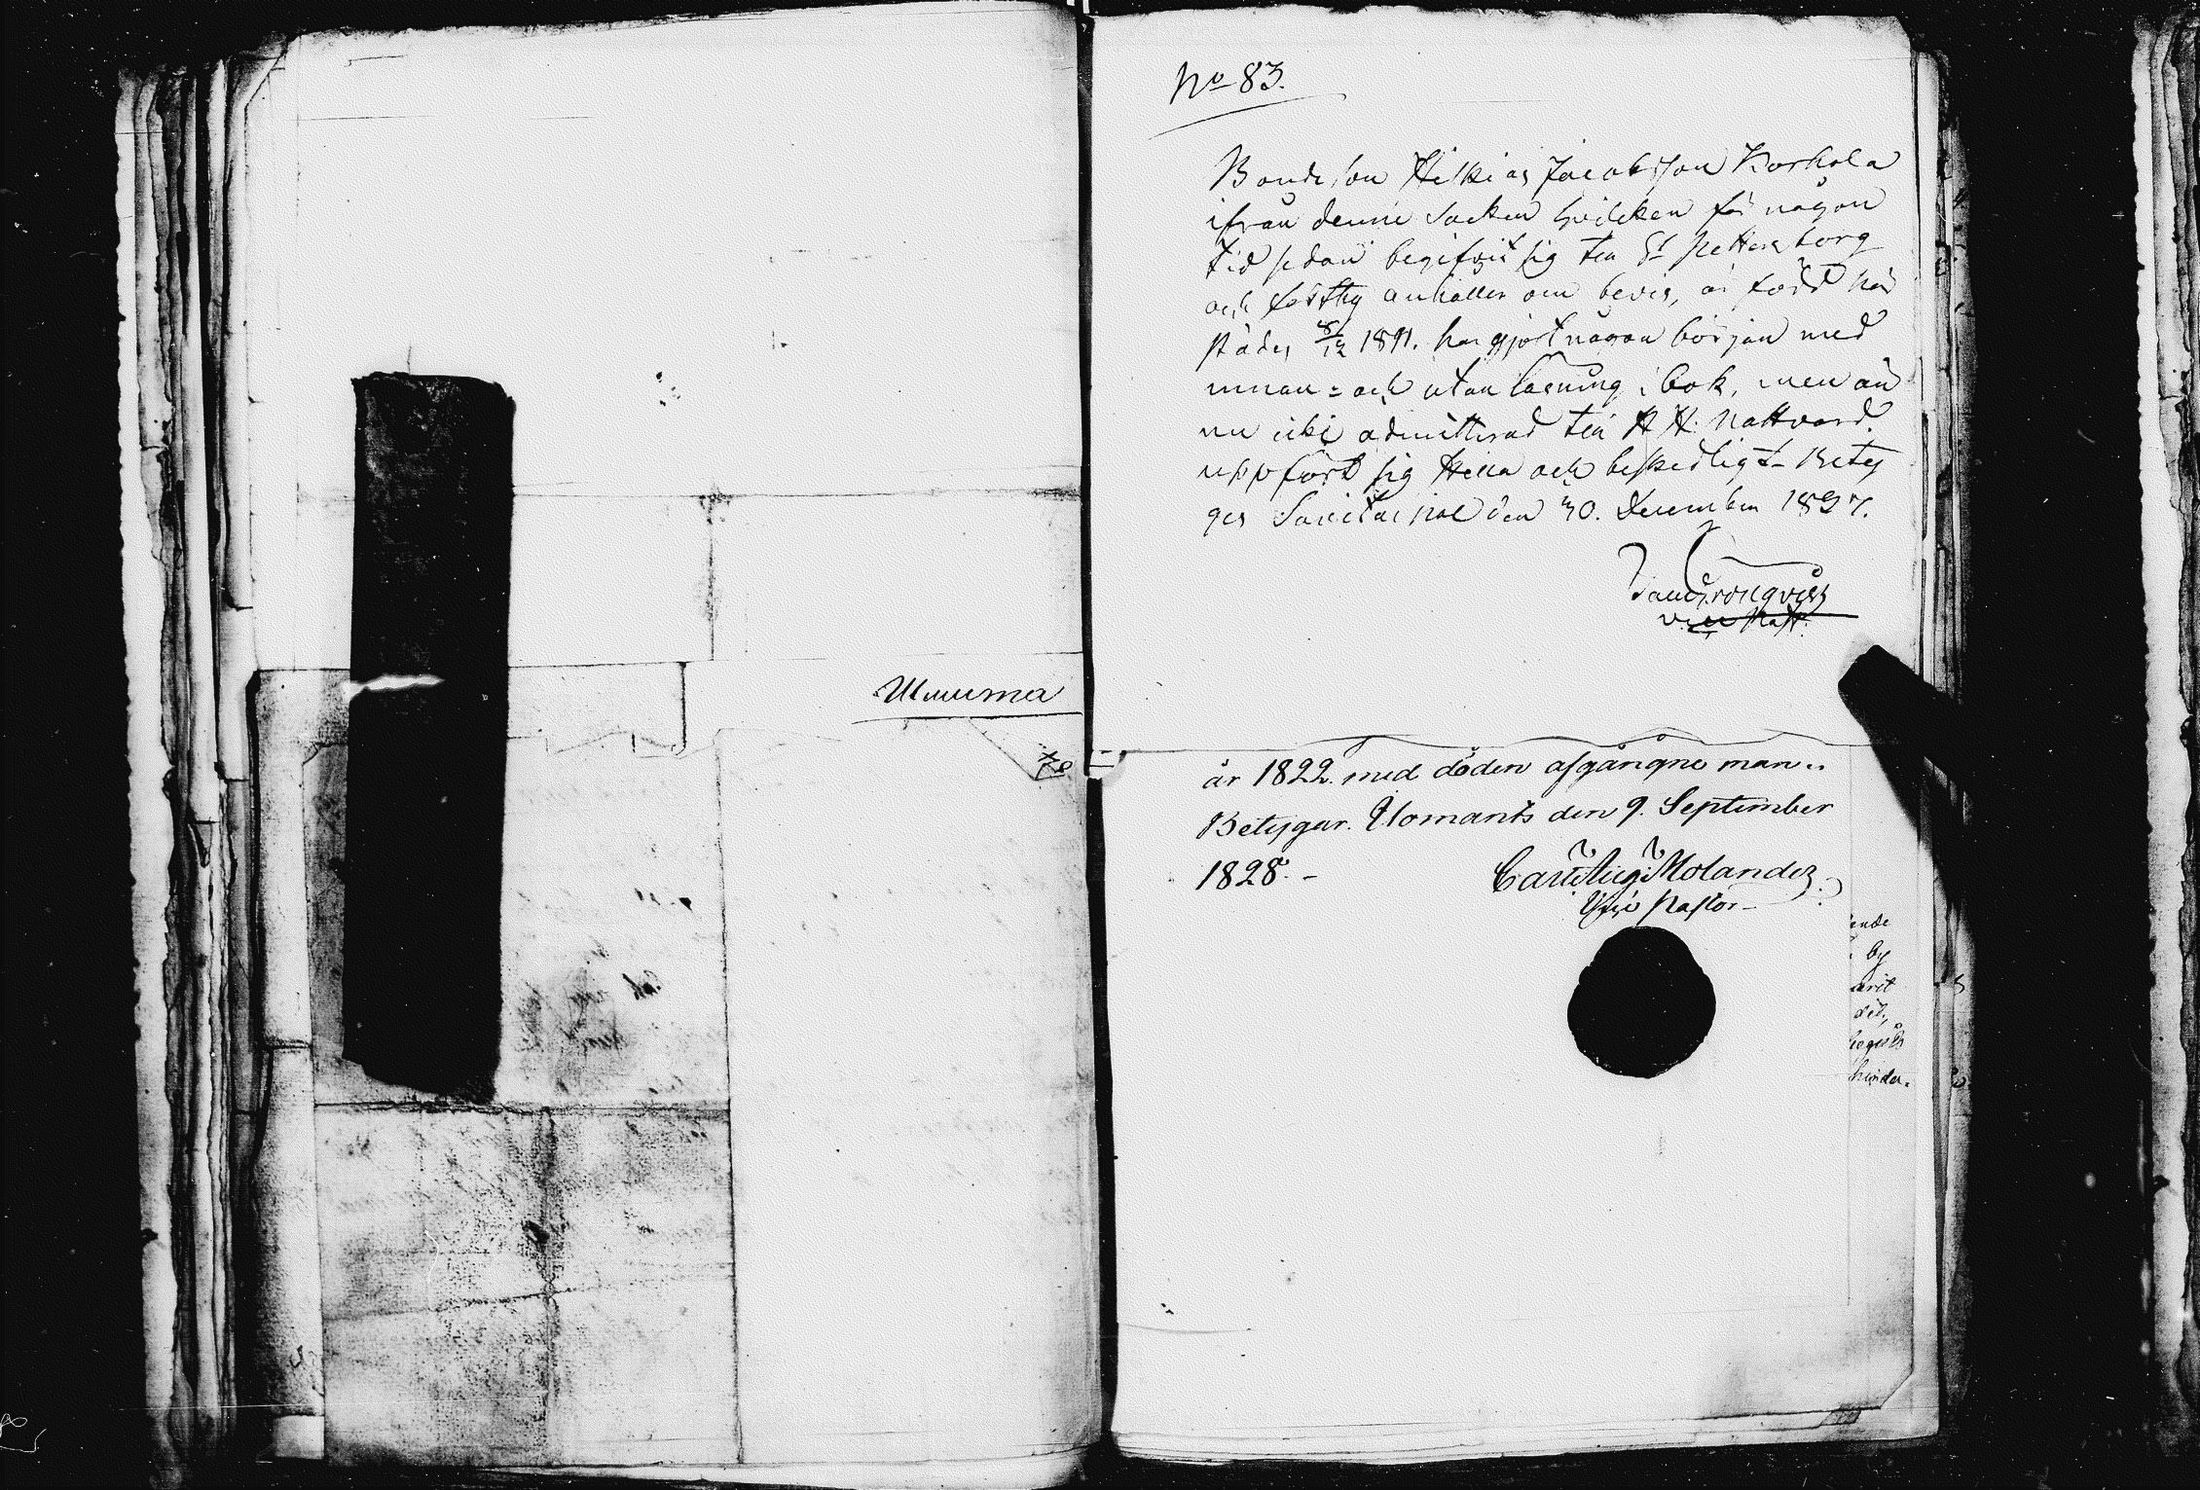 No 83.
Bondeson Hiskias Jacobsson Korhola
ifrån denne Socken hvilcken för någon
tid sedan begifvit sig till St Pettersborg
och anhåller om bevis, är född här
städes 8/12 1811. har gjort någon början med
innan- och utan läsning i bok, men än
nu icke admitterad till H H. Nattvard.
uppfört sig stilla och beskedligt- Bety
ges den 30. December 1827.
vice Past.
Ummema
år 1822. med döden afgångne man..
Betygar. Ilomants den 9. September
1828. -
Carl Aug: Molander
Vice Pastor
ende
by
arit
det,
hinder.